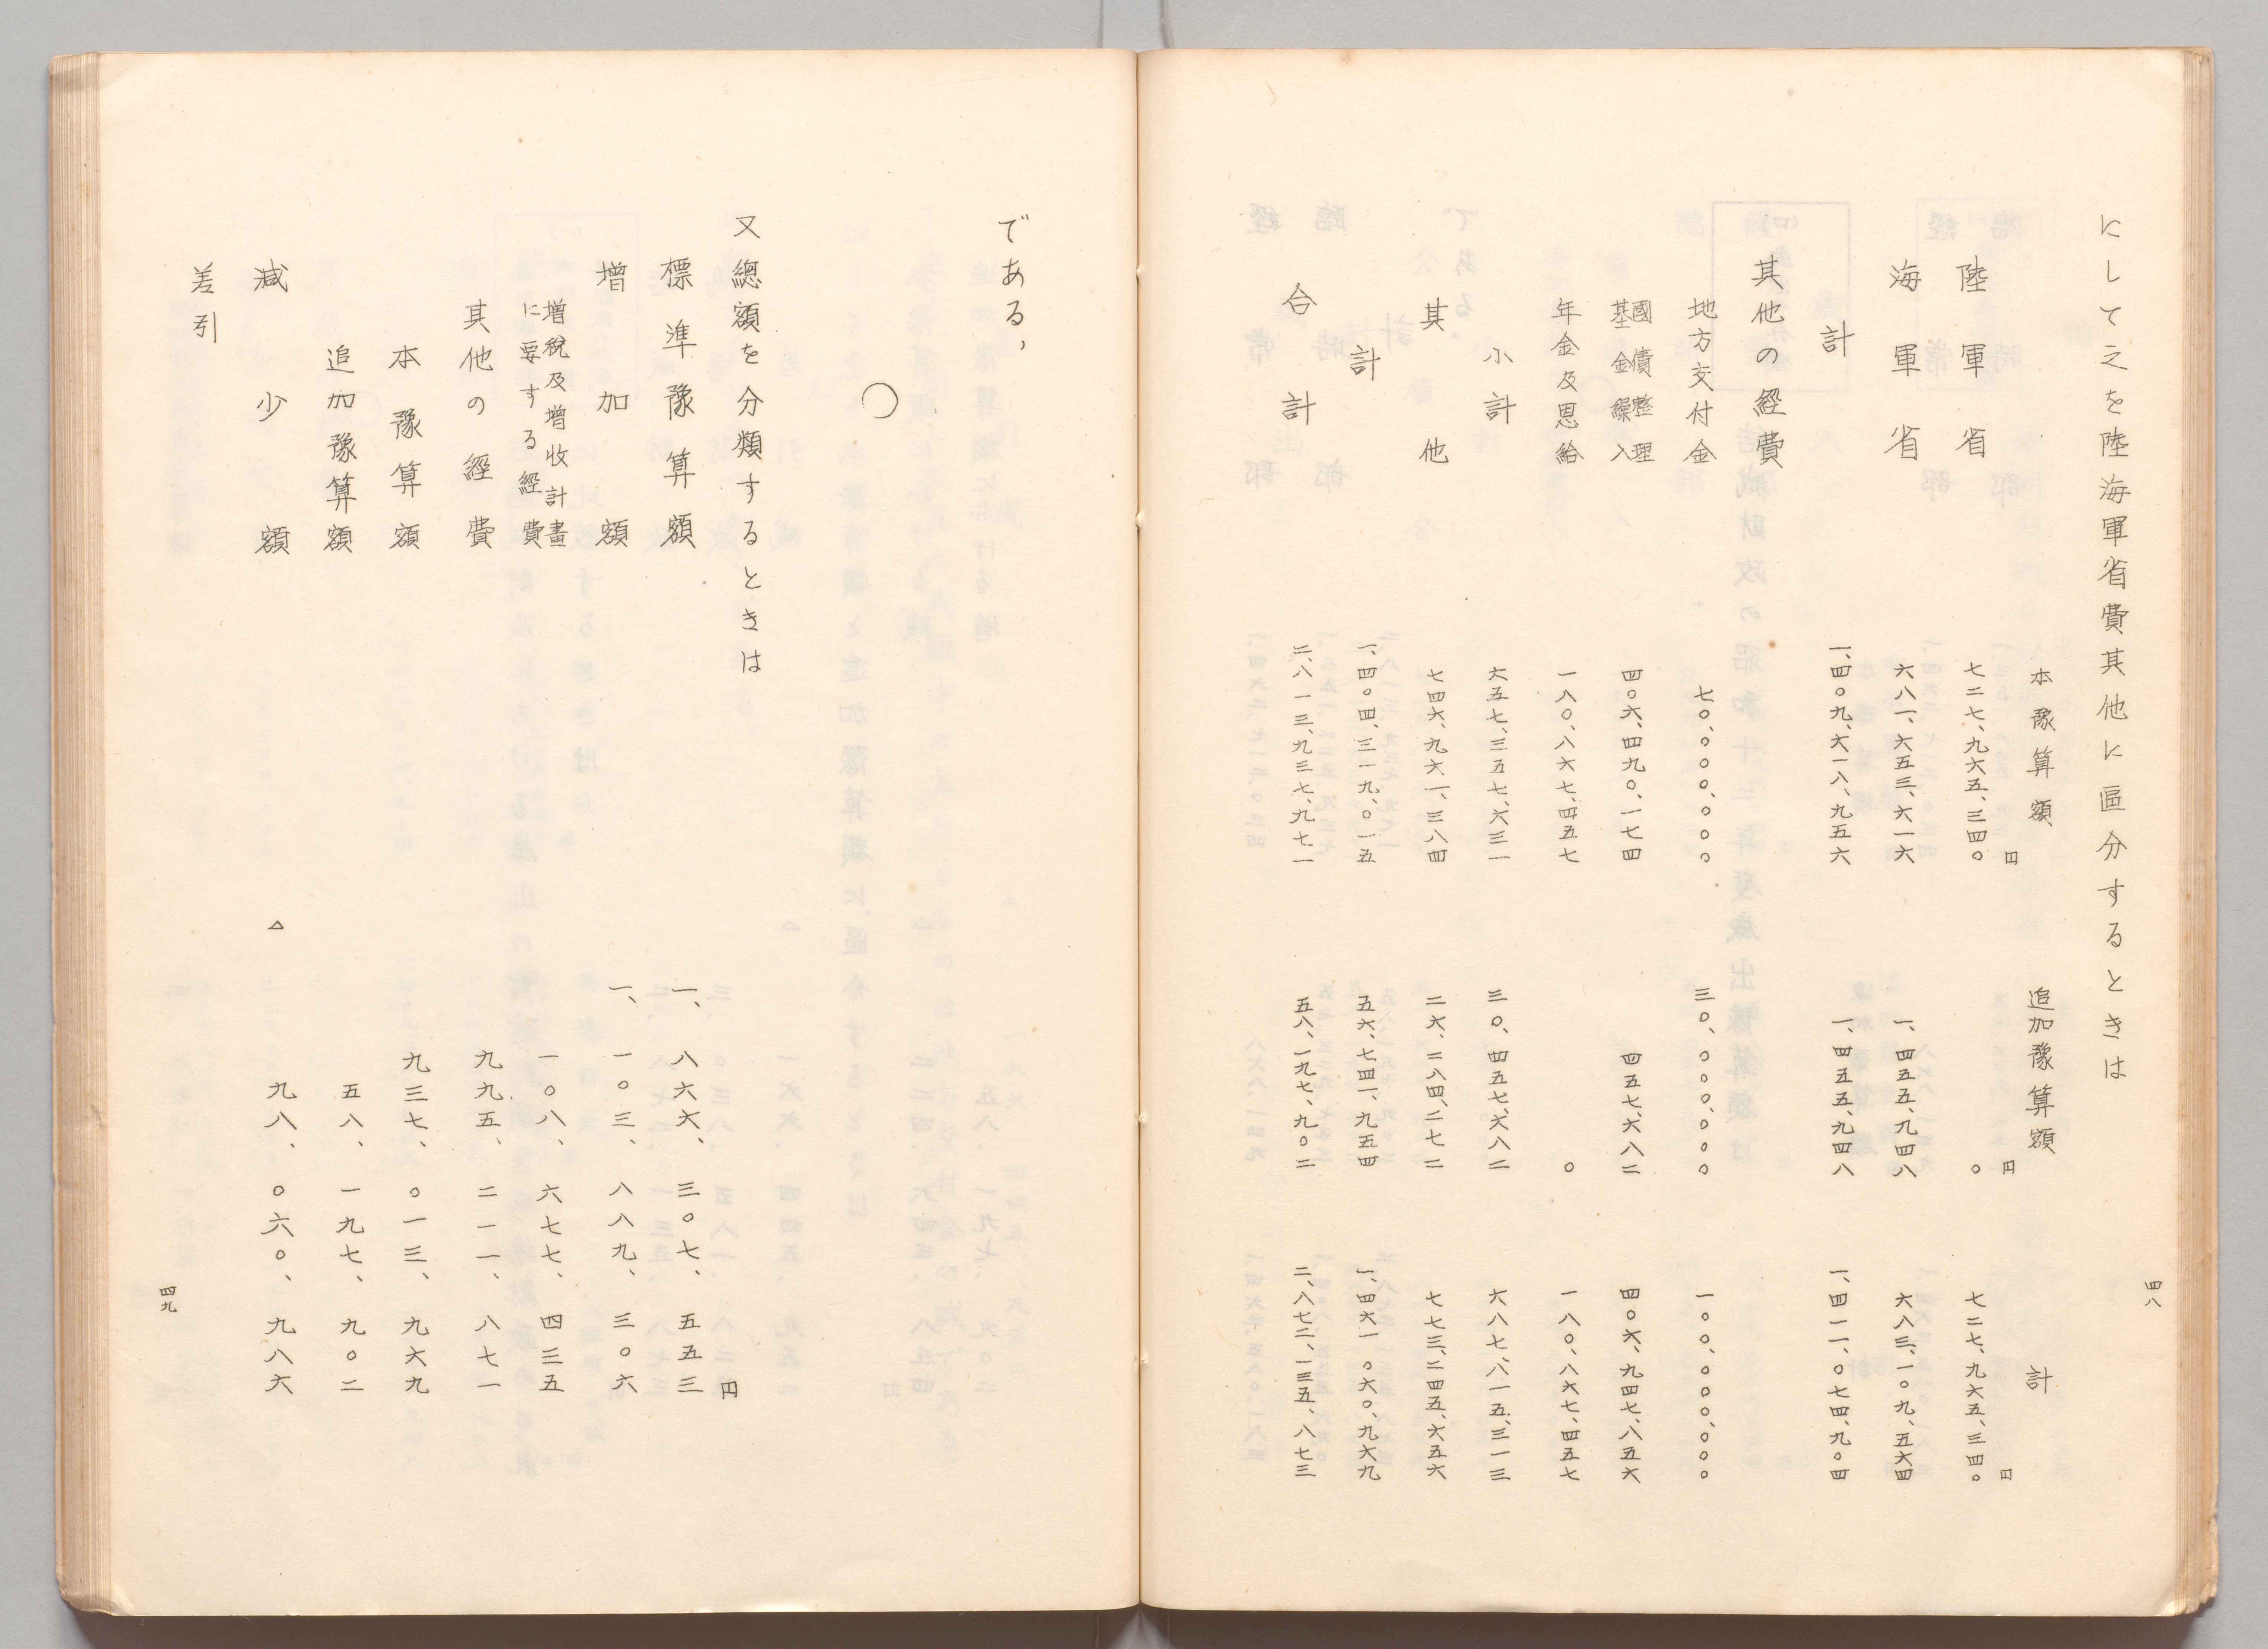 四八
にして之を陸海軍省費其他に區分するときは
本豫算額 追加豫算額 計
円 円 円
陸軍省 七二七、九六五、三四〇 〇 七二七、九六五、三四〇
海軍省 六八一、六五三、六一六 一、四五五、九四八 六八三、一〇九、五六四
計 一、四〇九、六一八、九五六 一、四五五、九四八 一、四一一、〇七四、九〇四
其他の經費
地方交付金 七〇、〇〇〇、〇〇〇 三〇、〇〇〇、〇〇〇 一〇〇、〇〇〇、〇〇〇
國債整理
基金繰入 四〇六、四九〇、一七四 四五七、六八二 四〇六、九四七、八五六
年金及恩給 一八〇、八六七、四五七 〇 一八〇、八六七、四五七
小計 六五七、三五七、六三一 三〇、四五七、六八二 六八七、八一五、三一三
其他 七四六、九六一、三八四 二六、二八四、二七二 七七三、二四五、六五六
計 一、四〇四、三一九、〇一五 五六、七四一、九五四 一、四六一、〇六〇、九六九
合計 二、八一三、九三七、九七一 五八、一九七、九〇二 二、八七二、一三五、八七三
である、
〇
又總額を分類するときは
円
標準豫算額 一、八六六、三〇七、五五三
増加額 一、一〇三、八八九、三〇六
増稅及増收計畫
に要する經費 一〇八、六七七、四三五
其他の經費 九九五、二一一、八七一
本豫算額 九三七、〇一三、九六九
追加豫算額 五八、一九七、九〇二
減少額 △ 九八、〇六〇、九八六
差引
四九